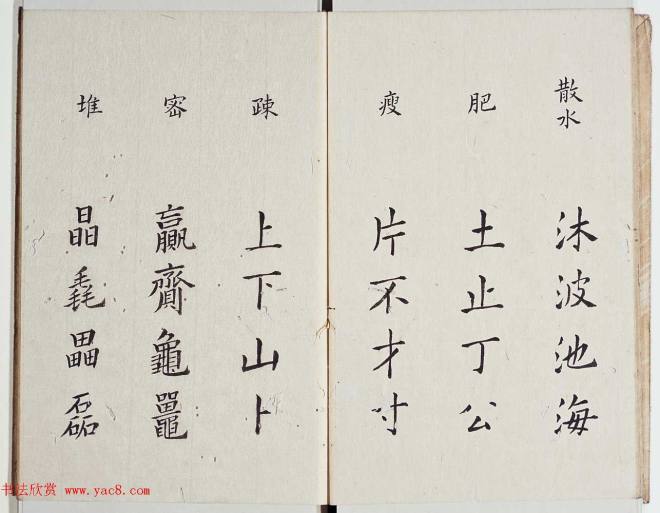 散水
沐波池海
肥
土止丁公
瘦
片不才寸
疎
上下山卜
密
齋龜鼉
堆
晶毳畾磊
书法欣赏 www.yac8.com